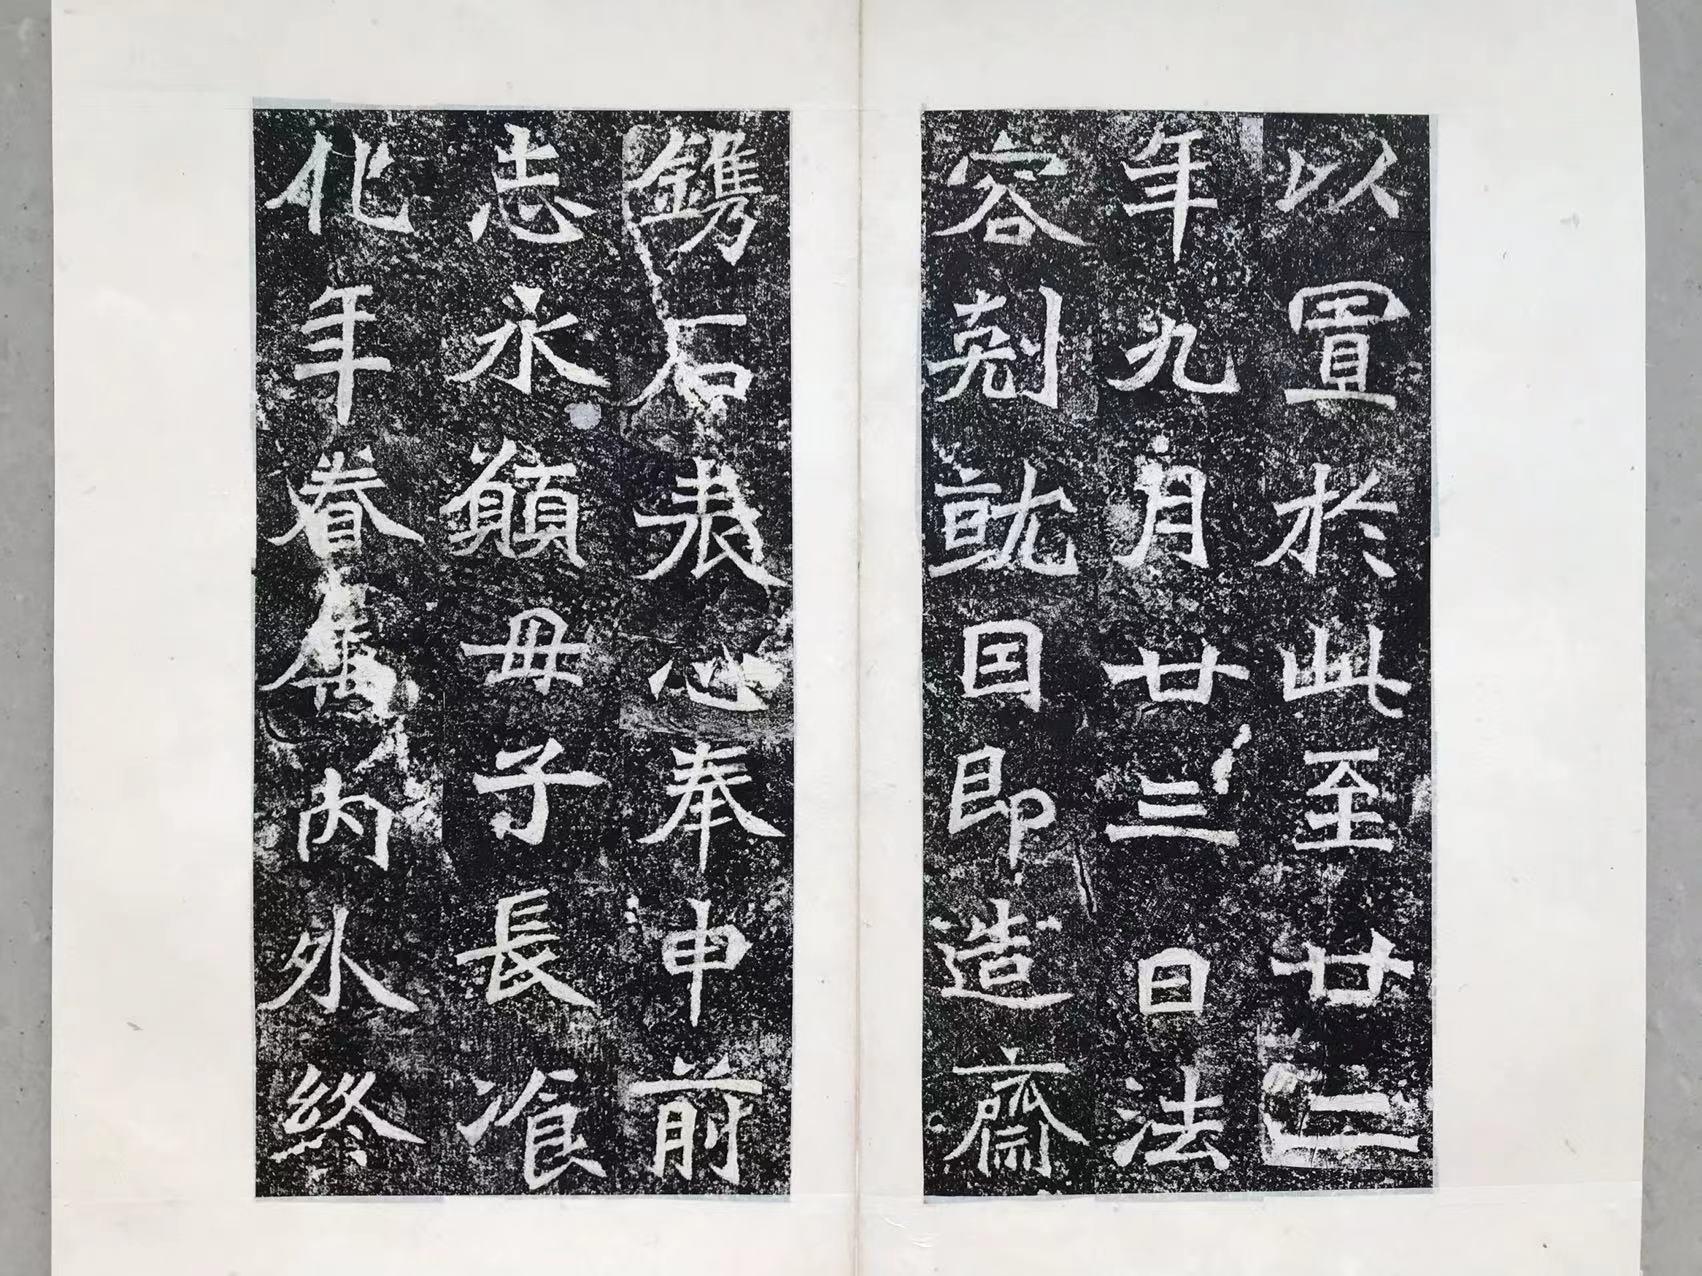 以置於此至廿二
年九月廿三日法
容剋就因即造齋
鐫石表心奉申前
志永願母子長飡
化年眷內外終